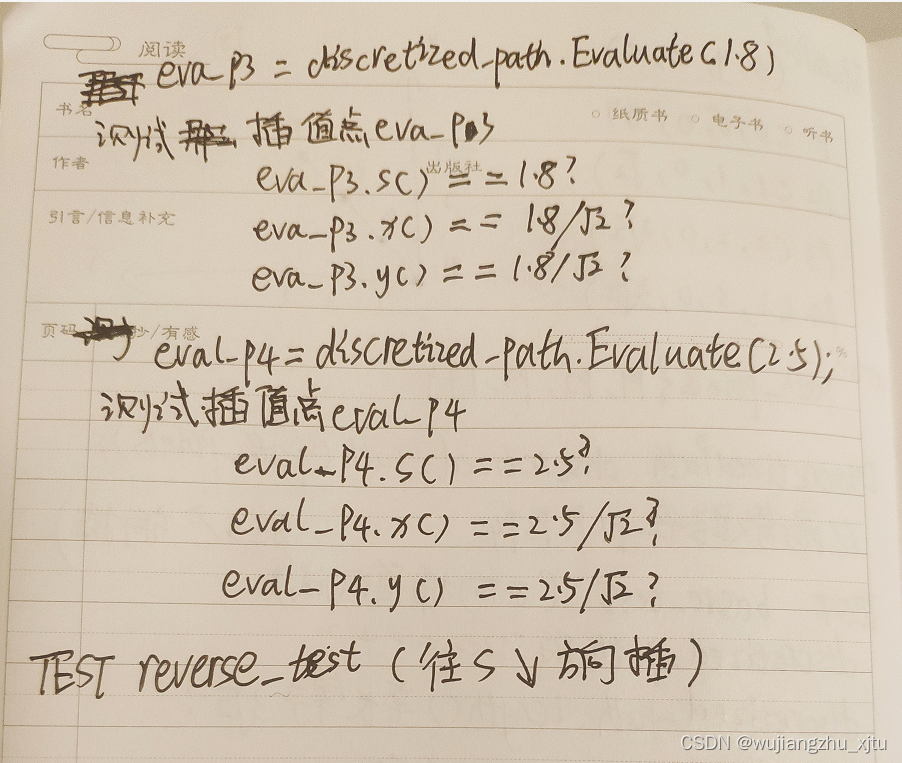 阅读
eva_P3 = discretized_path.Evaluate(1.8)
书名
纸质书 电子书 听书
测试 插值点eva_P3
作者
出版社
eva_P3.s() == 1.8?
引言/信息补充
eva_P3.x() == 1.8/√2?
eva_P3.y() == 1.8/√2?
页码 抄/有感
eval_P4=discretized_path.Evaluate(2.5);
测试插值点eval_P4
eval_P4.s() ==2.5?
eval_P4.x() ==2.5/√2?
eval_P4.y() ==2.5/√2?
TEST reverse_test (往S↓方向插)
CSDN @wujiangzhu_xjtu